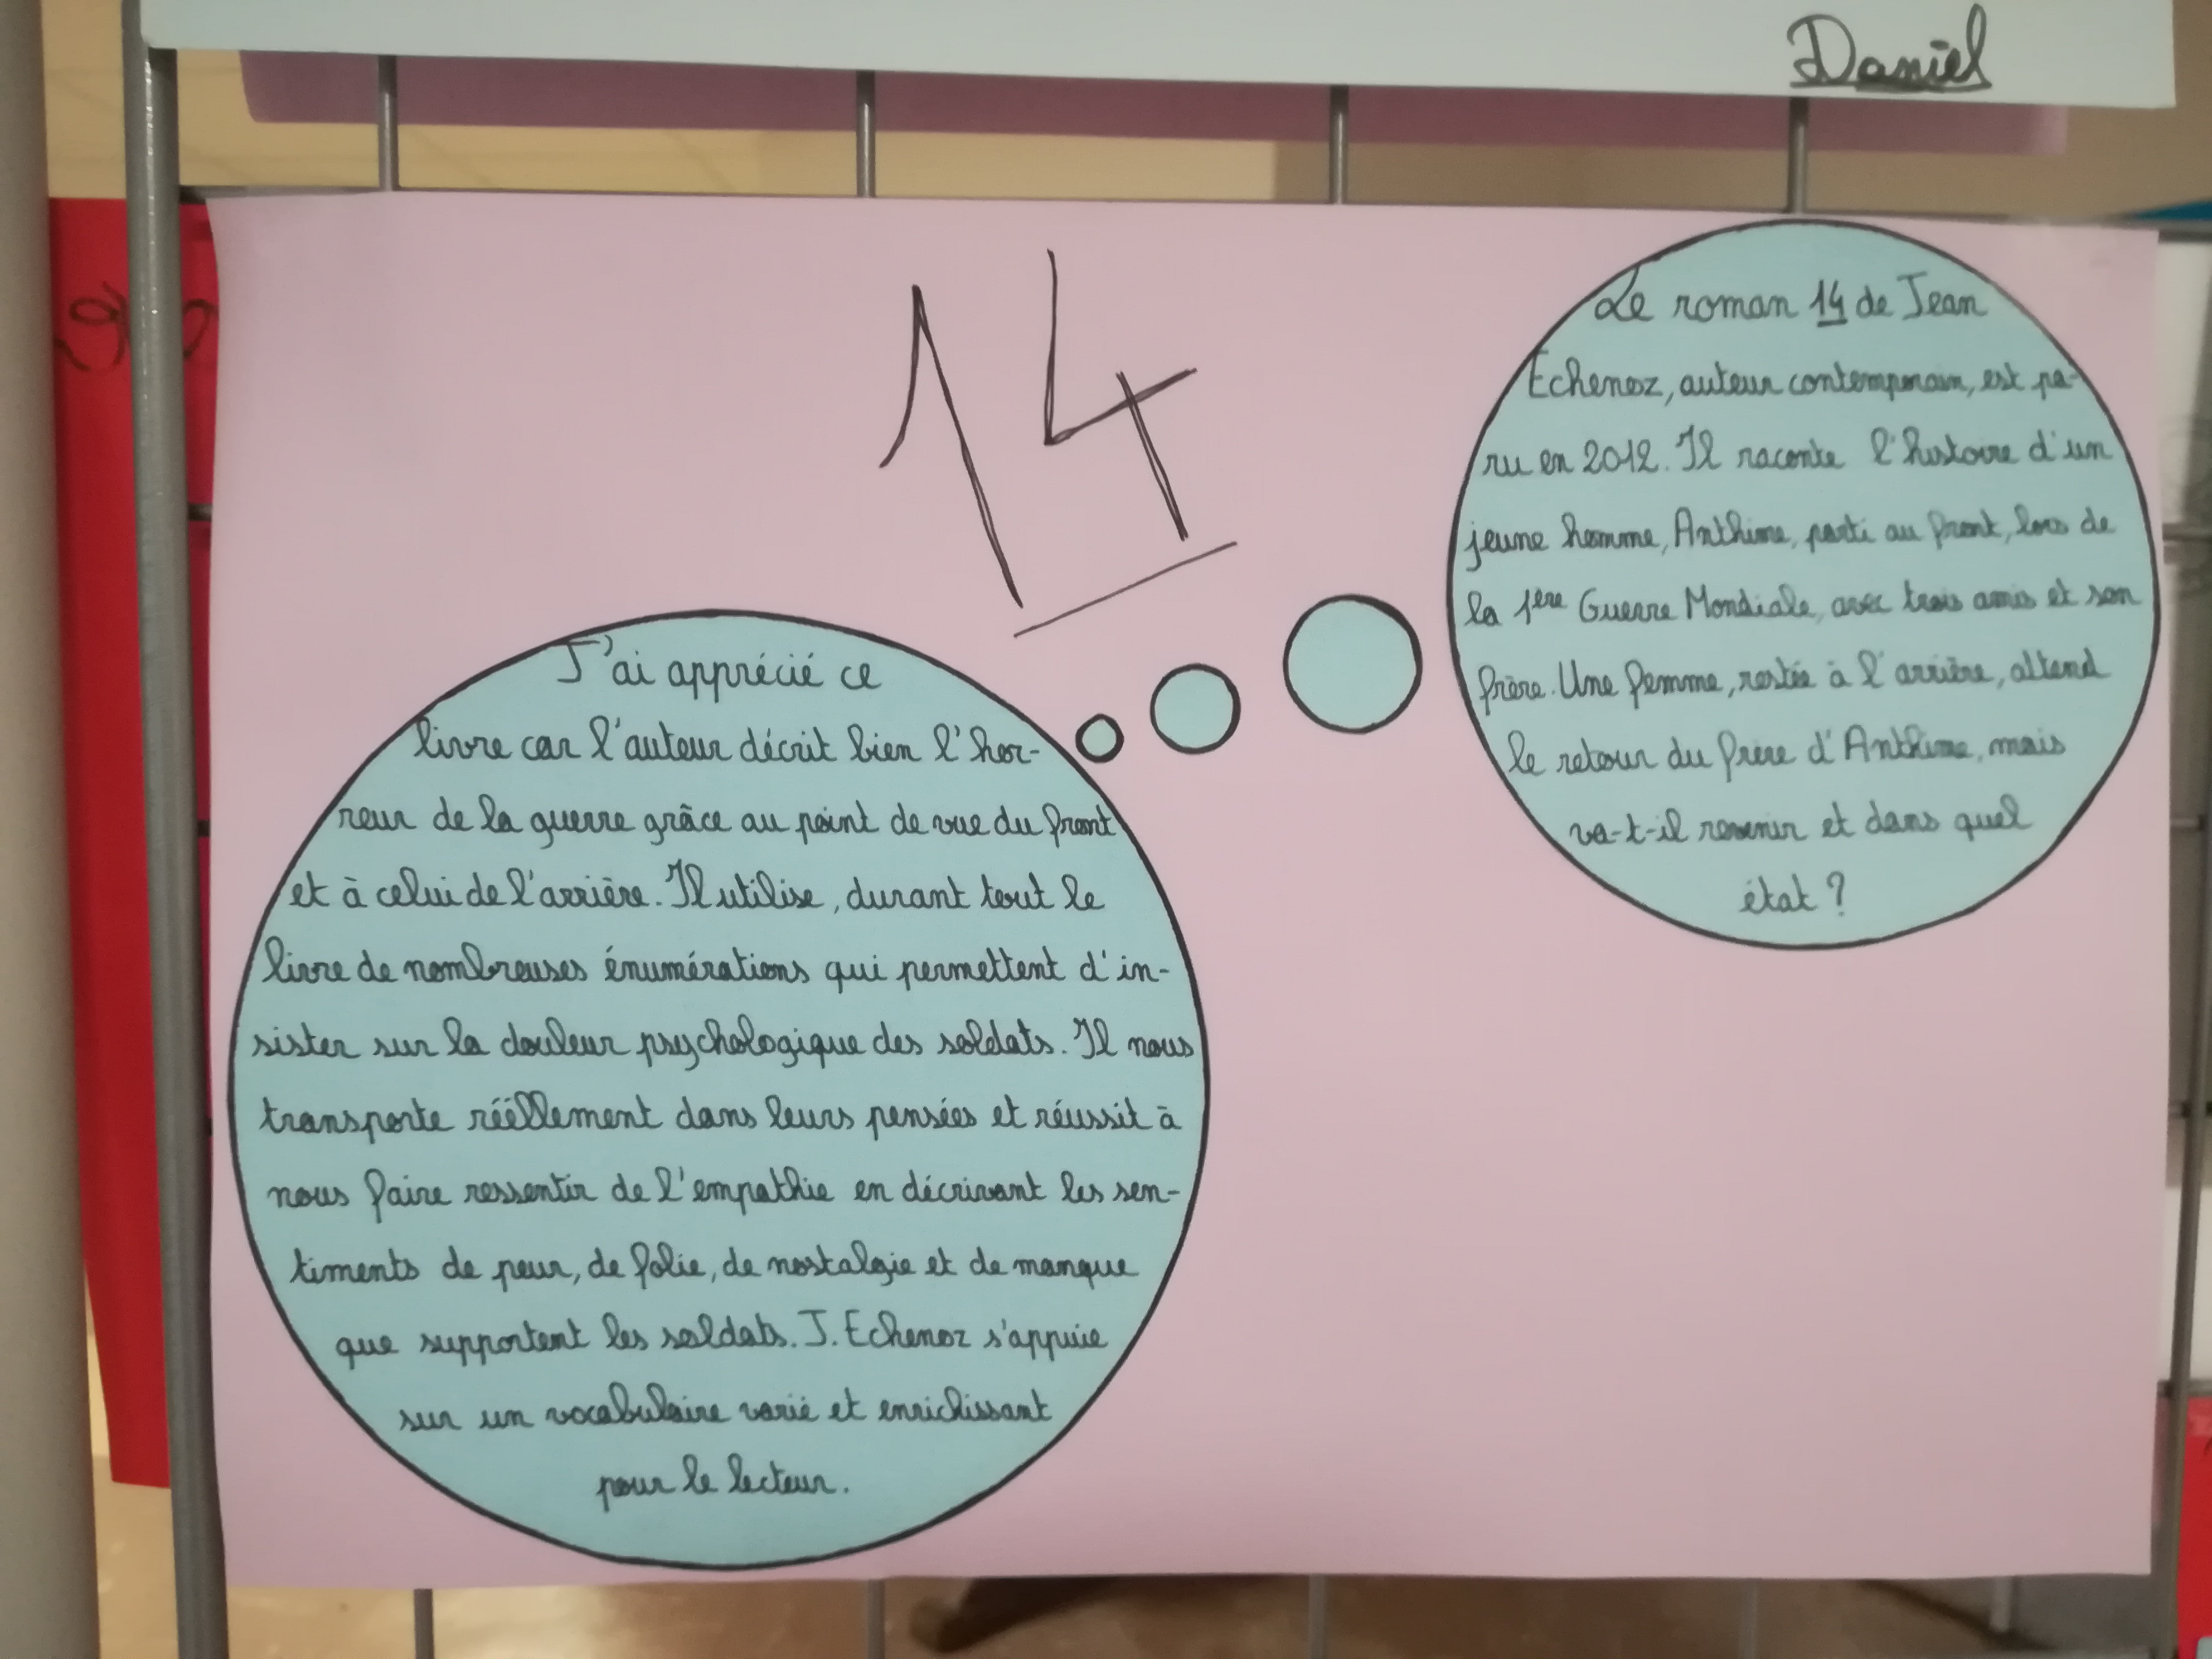 Daniel
14
Le roman 14 de Jean
Echenoz, auteur contemporain, est pa-
ru en 2012. Il raconte l'histoire d'un
jeune homme, Anthime, parti au front, lors de
la 1ère Guerre Mondiale, avec trois amis et son
frère. Une femme, restée à l'arrière, attend
le retour du frère d'Anthime, mais
va-t-il revenir et dans quel
état ?
J'ai apprécié ce
livre car l'auteur décrit bien l'hor-
reur de la guerre grâce au point de vue du front
et à celui de l'arrière. Il utilise, durant tout le
livre de nombreuses énumérations qui permettent d'in-
sister sur la douleur psychologique des soldats. Il nous
transporte réellement dans leurs pensées et réussit à
nous faire ressentir de l'empathie en décrivant les sen-
timents de peur, de folie, de nostalgie et de manque
que supportent les soldats. J. Echenoz s'appuie
sur un vocabulaire varié et enrichissant
pour le lecteur.